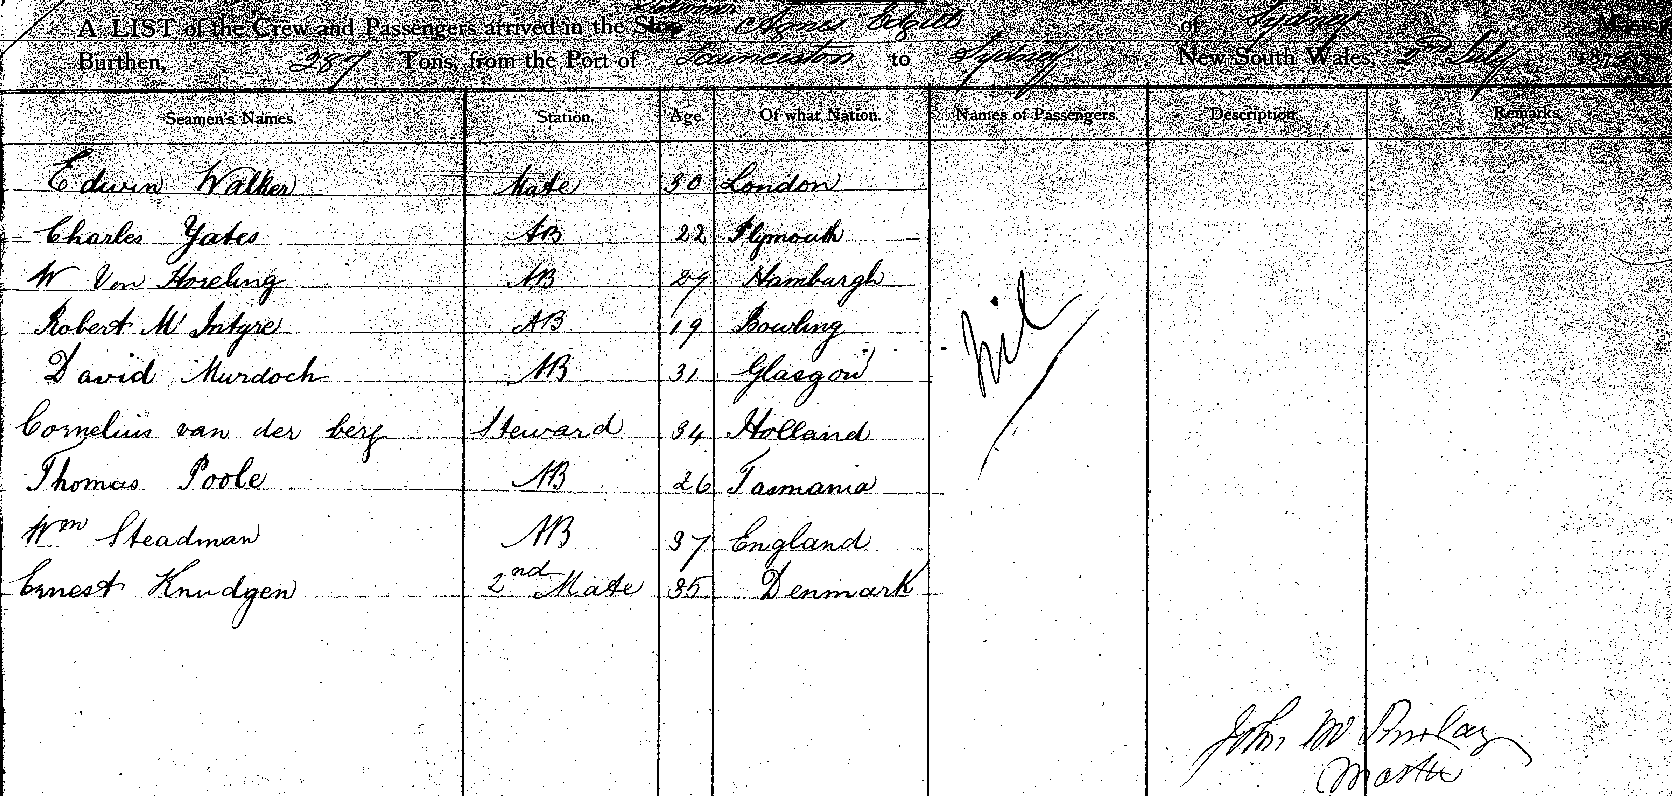 A LIST of the Crew and Passengers arrived in the Ship Agnes Edgell of Sydney
Burthen, 289 Tons, from the Port of Launceston to Sydney New South Wales, 2nd July
Seamen's Names. Station. Age. Of what Nation. Names of Passengers. Description. Remarks.
Edwin Walker Mate 30 London
Charles Yates AB 22 Plymouth
W Von Horeling AB 29 Hamburgh
Robert Mc Intyre AB 19 Bowling
nil
David Murdoch AB 31 Glasgow
Cornelius van der berg Steward 34 Holland
Thomas Poole AB 26 Tasmania
Wm Steadman AB 37 England
Ernest Knudgen 2nd Mate 35 Denmark
John
Master